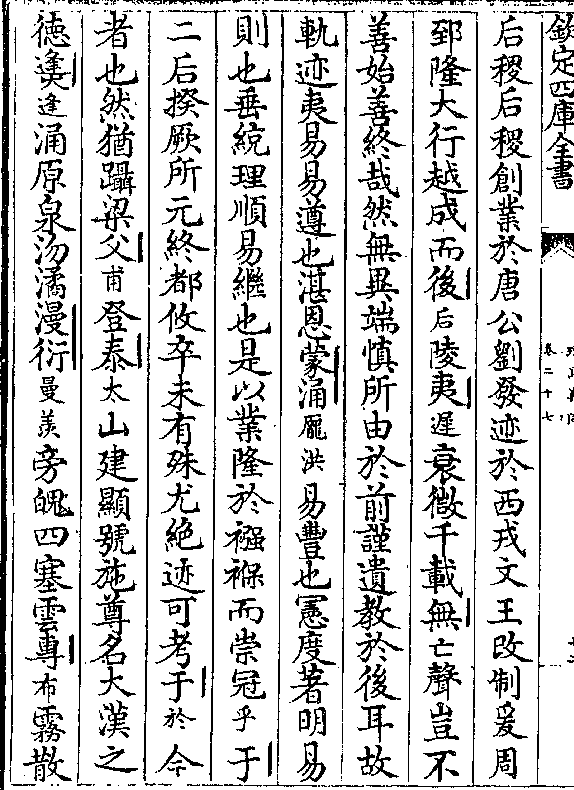 欽定四庫全書
卷二十七
后稷后稷創業於唐公劉發迹於西戎文王改制爰周
郅隆大行越成而後后陵夷遲衰微千載無亡聲豈不
善始善終哉然無異端慎所由於前謹遺教於後耳故
軌迹夷易易遵也湛恩蒙涌龐洪易豐也憲度著明易
則也垂統理順易繼也是以業隆於襁褓而崇冠乎于
二后揆厥所元終都攸卒未有殊尤絶迹可考于於今
者也然猶躡梁父甫登泰太山建顯號施尊名大漢之
德逢涌原泉沕潏漫衍曼羡旁魄四塞雲専布霧散